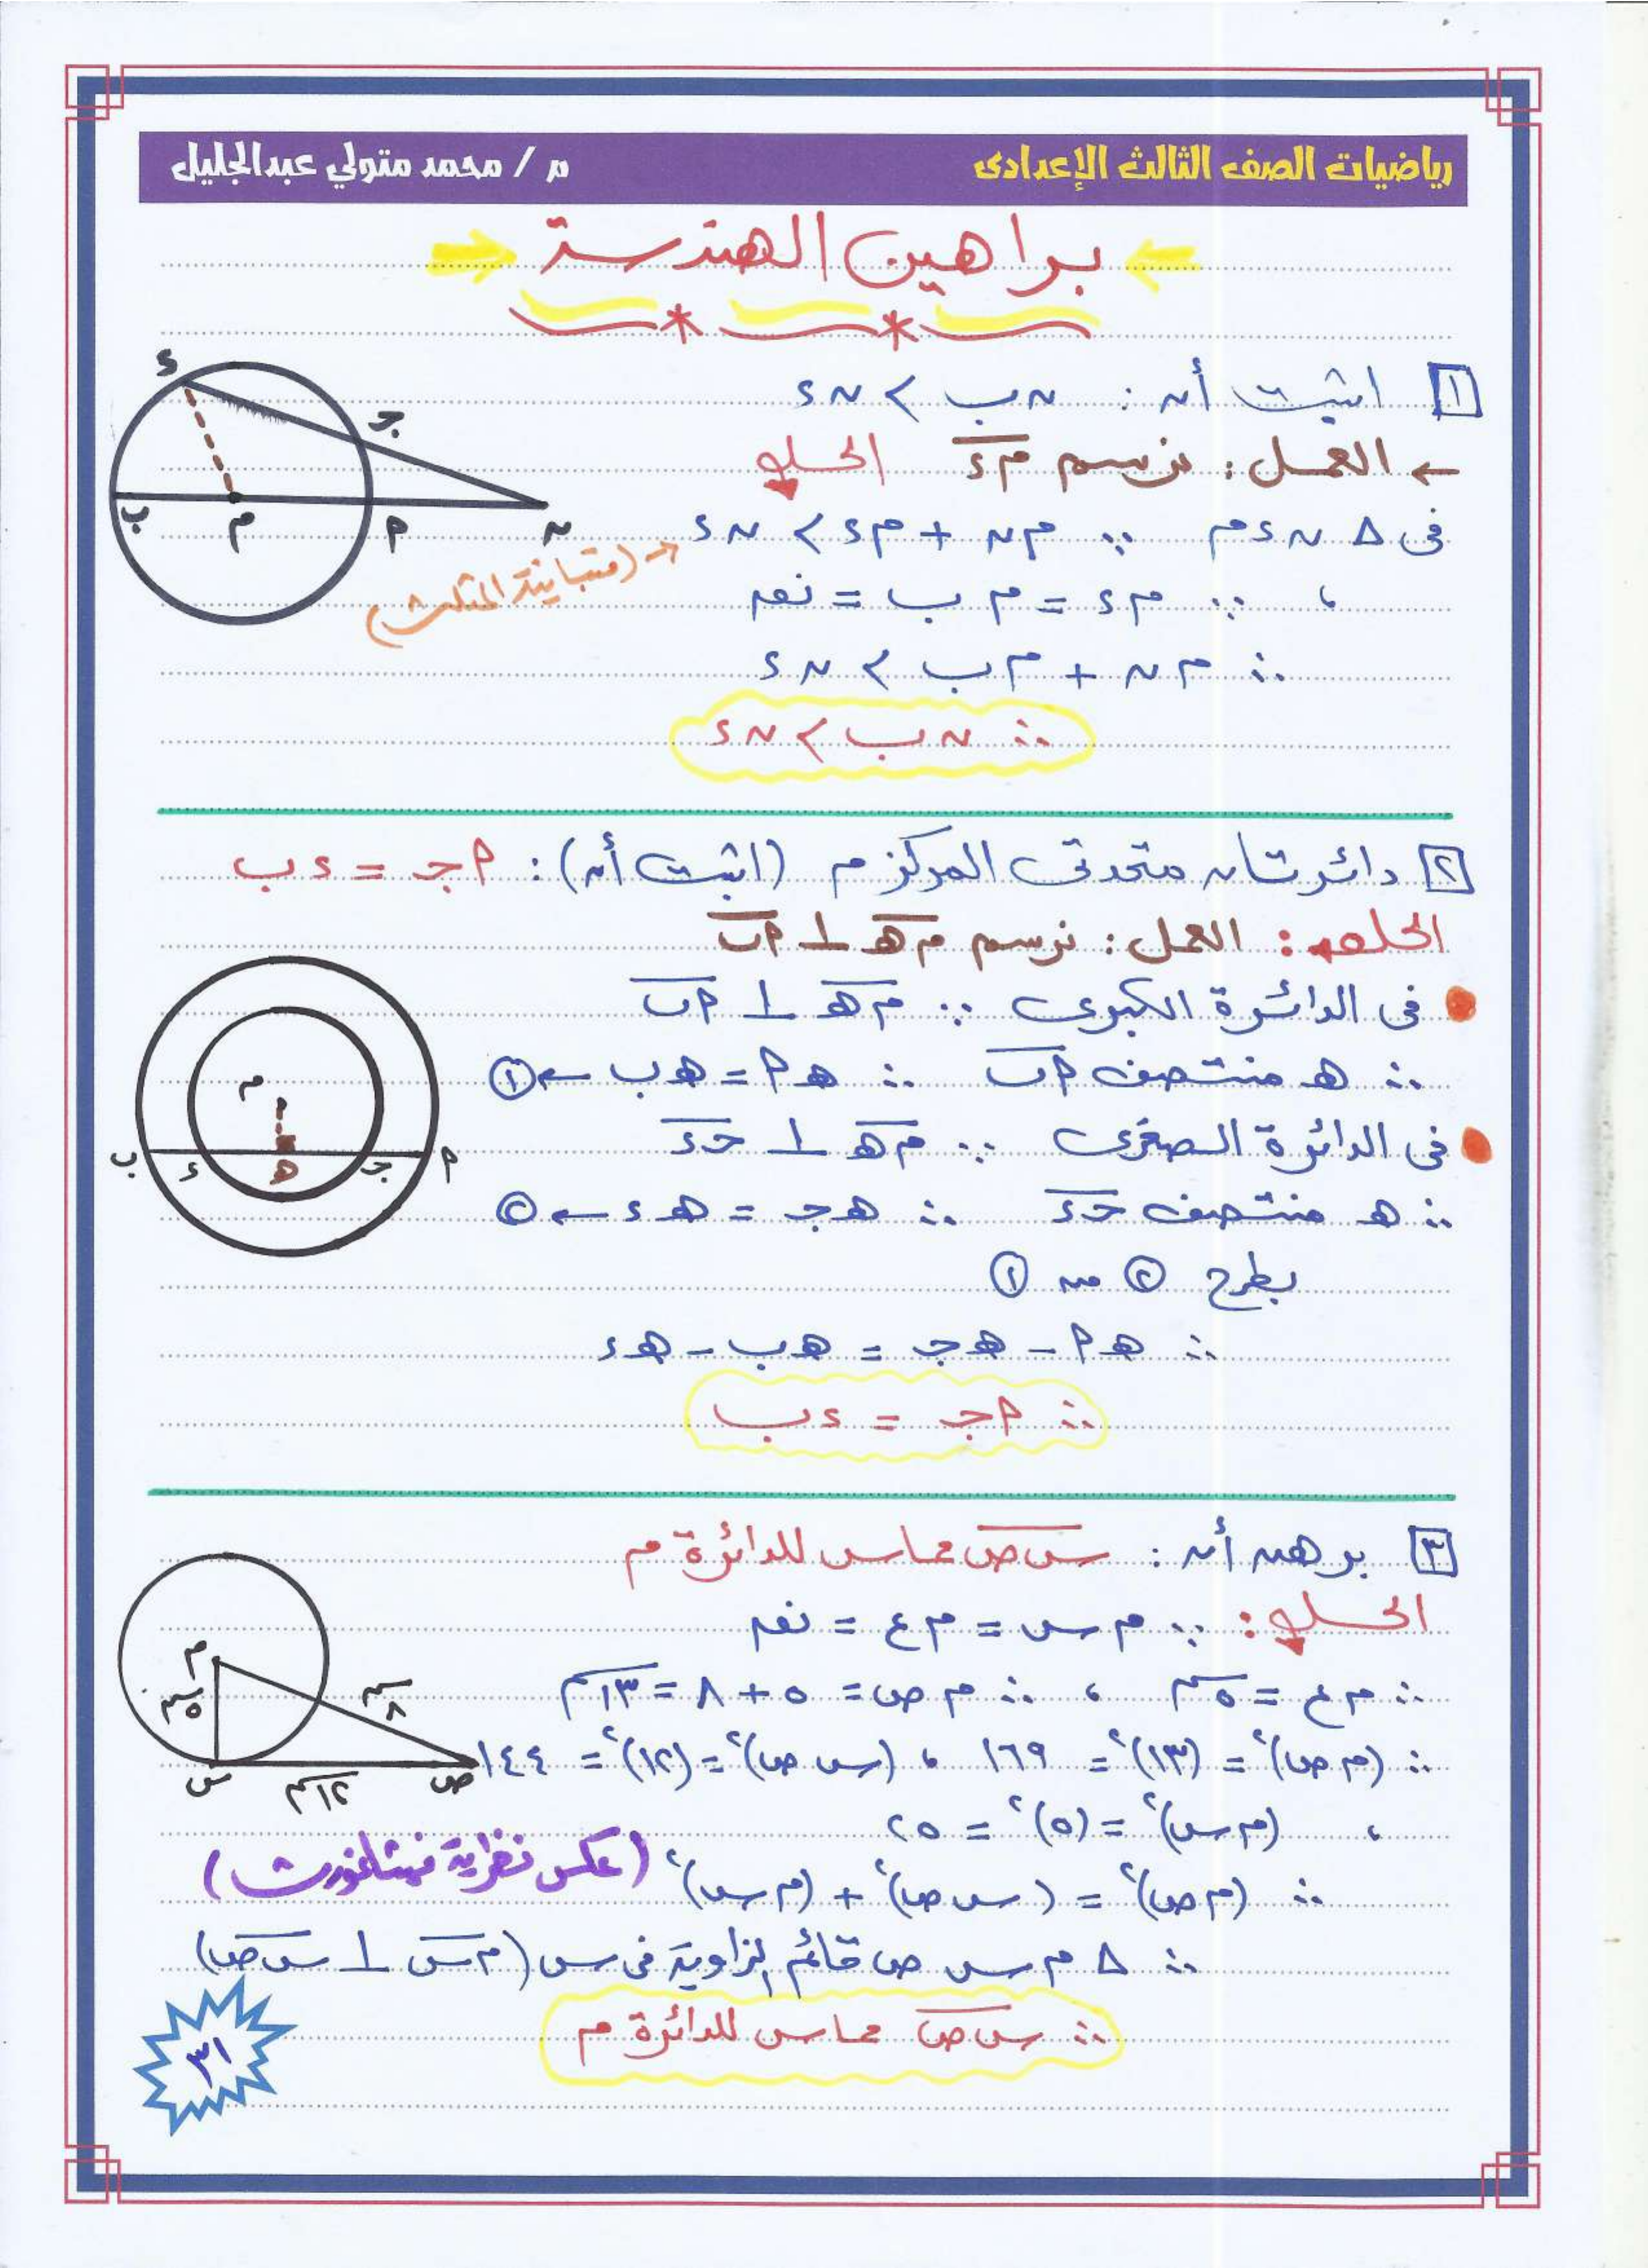 رياضيات الصف الثالث الإعدادى
م / محمد متولي عبدالجليل
براهين الهندسة
١ اثبت أن : ن ب > ن ء
← العمل : نرسم م ء الحل
فى Δ ن ء م ∵ م ن + م ء > ن ء ← (متباينة المثلث)
، ∵ م ء = م ب = نق
∴ م ن + م ب > ن ء
∴ ن ب > ن ء
ء
جـ
ب
م
أ
ن
٢ دائرتان متحدتى المركز م (اثبت أن) : أ جـ = ء ب
الحل : العمل : نرسم م هـ ⊥ أ ب
فى الدائرة الكبرى ∵ م هـ ⊥ أ ب
∴ هـ منتصف أ ب ∴ هـ أ = هـ ب ← ①
فى الدائرة الصغرى ∵ م هـ ⊥ جـ ء
∴ هـ منتصف جـ ء ∴ هـ جـ = هـ ء ← ②
بطرح ② من ①
∴ هـ أ - هـ جـ = هـ ب - هـ ء
∴ أ جـ = ء ب
م
أ
جـ
هـ
ء
ب
٣ برهن أن : س ص مماس للدائرة م
الحل : ∵ م س = م ع = نق
∴ م ع = ٥ سم ، ∴ م ص = ٥ + ٨ = ١٣ سم
∴ (م ص)² = (١٣)² = ١٦٩ ، (س ص)² = (١٢)² = ١٤٤
، (م س)² = (٥)² = ٢٥
∴ (م ص)² = (س ص)² + (م س)² (عكس نظرية فيثاغورث)
∴ Δ م س ص قائم الزاوية فى س (م س ⊥ س ص)
∴ س ص مماس للدائرة م
م
٥ سم
٨ سم
س
١٢ سم
ص
٣١